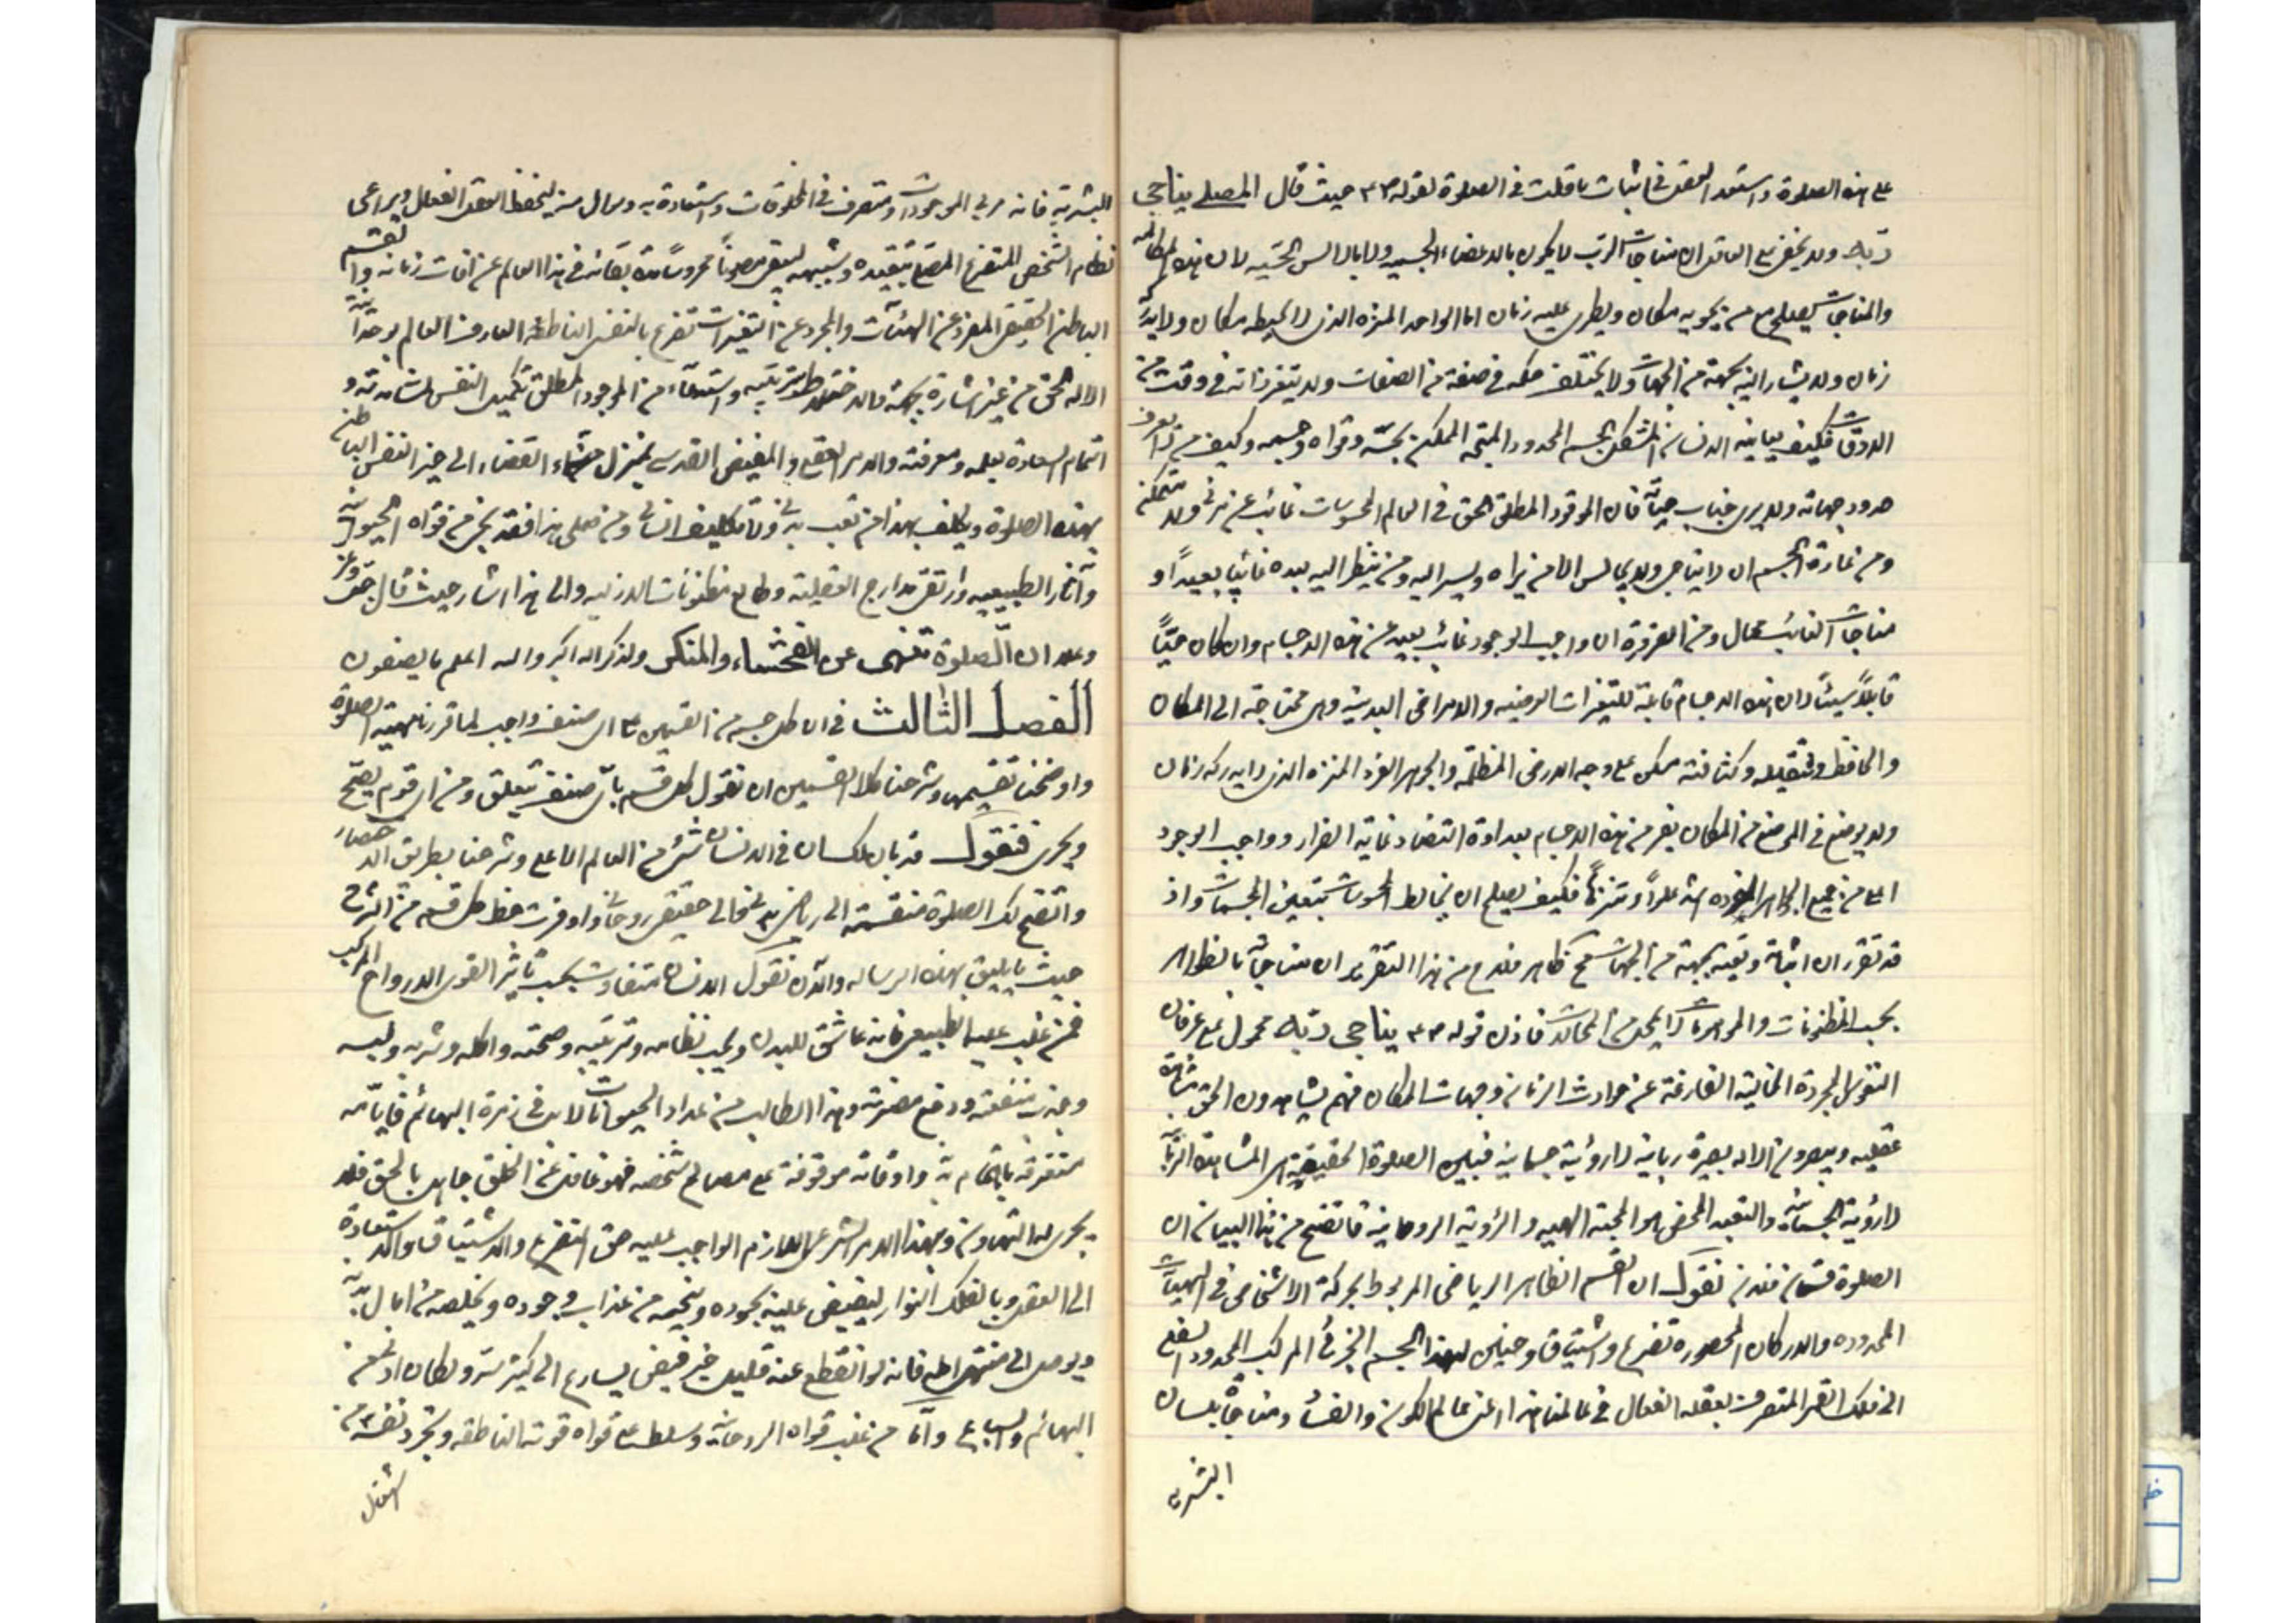 على هذه الصلوة واستعد العقل في اثبات ما قلت في الصلوة لقوله ص ع م حيث قال المصلى يناجى
ربه ولا يخفى على العاقل ان مناجات الرب لا يكون بالاعضاء الجسميه ولا بالالسن الحسّيه لان هذه المكالمه
والمناجات يصلح مع من يحويه مكان ويطرى عليه زمان اما الواحد المنزه الذى لا يحيطه مكان ولا يدركه
زمان ولا يشار اليه بجهة من الجهات ولا يختلف حكمه في صفة من الصفات ولا يتغير ذاته في وقت من
الاوقات فكيف يعاينه الانسان المشكل المجسم المحدود المتجه المتمكن بحسّه وقواه وجسمه وكيف يناجى من لا يعرف
حدود جهاته ولا يرى جناب حيثياته فان الموجود المطلق الحق في العالم المحسوسات غائب غير مرئى ولا متمكن
ومن عادة الجسم ان لا يناجى ولا يجالس الا من يراه ويشير اليه ومن لم ينظر اليه يعده غائبا بعيداً و
مناجات الغائب محال ومن الضرورة ان واجب الوجود غائب بعيد عن هذه الاجسام وان كان
لان هذه الاجسام قابلة للتغيرات العرضيه والاعراض البدنية وهى محتاجة الى المكان
والحافظ وبثقله وكثافته يمكن على وجه الارض المظلمة والجوهر الفرد المنزه الذى لا يدركه زمان
ولا يوضع في الموضع من المكان يفر من هذه الاجسام بعداوة التضاد غاية الفرار وواجب الوجود
اعلى من جميع الجواهر المفرده اشد علواً وتنزهاً فكيف يصلح ان يخالط المحسوسات والمجسمات واذ
قد تقرر ان اثباته وتعينه بجهة من الجهات محال ظاهر فلاح من هذا التقرير ان مناجاته بالظواهر
بحسب المظنونات والموهومات لمن امحل المحالات فاذن قوله ص ع م يناجى ربه محمول على عرفان
النفوس المجردة الخالية الفارغة عن حوادث الزمان وجهات المكان فهم يشاهدون الحق مشاهدة
عقليه ويبصرون الاله بصيرة ربانية لا رؤية جسمانية فتبين الصلوة الحقيقية هى المشاهدة الربانية
لا رؤية الجسمانية والتعبد المحض هو المحبة الالهيه والرؤية الروحانية فاتضح من هذا البيان ان
الصلوة قسمان فلان نقول ان القسم الظاهر الرياضى المربوط بحركة الاشخاص في الهيئات
المعدوده والاركان المحصوره تضرع واشتياق وحنين لهذا الجسم الجزئى المركب المحدود السفلى
الى فلك القمر المتصرف بعقله الفعال في عالمنا هذا اعنى عالم الكون والفساد ومناجاة بلسان
البشرية
البشرية فانه مربى الموجودات ومتصرف في المخلوقات واستعاذة به وسوال منه ليحفظ العقل الفعال ويراعى
نظام الشخص المتضرع المصلى بتعبده وتشبهه ليبقى مصوناً محروساً مدة بقائه في هذا العالم عن آفات زمانه والقسم
الباطن الحقيقى المفرد عن الهيئات والمجرد عن التغيرات تضرع بالنفس الناطقة العارفة العالم بوحدانية
الاله الحق من غير اشارة بجهة ولا اختلاط بترتيبه واستدعاء من الموجود المطلق تكميل النفس بمشاهدته و
اتمام السعادة بعلمه ومعرفته والامر العقلى والفيض القدسى ينزل من سماء القضاء الى حيز النفس الباطن
بهذه الصلوة ويكلف بهذا من تعب بدنى ولا تكليف انسانى ومن صلى هذا فقد نجى من قواه الحيوانية
وآثار الطبيعيه وارتقى مدارج العقلية وطالع مكنونات الازليه والى هذا اشار حيث قال عز وجل
ان الصلوة تنهى عن الفحشاء والمنكر ولذكر الله اكبر والله اعلم ما يصنعون
الفصل الثالث في ان كل جسم من القسمين على اى صنف واجب لما قررنا مهية الصلوة
واوضحنا تقسيمها وشرحنا كلا القسمين ان نقول كل قسم باى صنف يتعلق ومن اى قوم يصح
ويجرى فنقول قد بان لك ان في الانسان شئ من العالم الاعلى وشرحنا بطريق الاختصار
واتضح لك الصلوة منقسمة الى رياضى بدنى والى حقيقى روحانى واوفرت حظ كل قسم من الشرح
حيث ما يليق بهذه الرساله والآن نقول الانسان متفاوت بحسب تأثير القوى الارواح المركب
فمن غلب عليه الطبيعى فانه عاشق للبدن ويحب نظامه وتربيته وصحته واكله وشربه ولبسه
وجذب منفعته ودفع مضرته وهذا الطالب من عداد الحيوانات لا بل في زمرة البهائم فايامه
مستغرقة باهتمام بدنه واوقاته موقوفة على مصالح شخصه فهو غافل عن الخلق جاهل بالحق فلا
يجرى له التهاون بهذا الامر الشرعى اللازم الواجب عليه حق التضرع والاشتياق والاستعاذة
الى العقل وبالفلك الدوار ليفيض عليه بجوده وينجيه من عذاب وجوده ويخلصه من آمال بدنه
ويوصل الى منتهى املہ فانه لو انقطع عنه قليل خير فيض يسارع الى كثير شر ولكان ادنى من
البهائم والسباع واما من غلب قواه الروحانية وسلط على قواه قوته الناطقه وتجرد نفسه من
اشغال